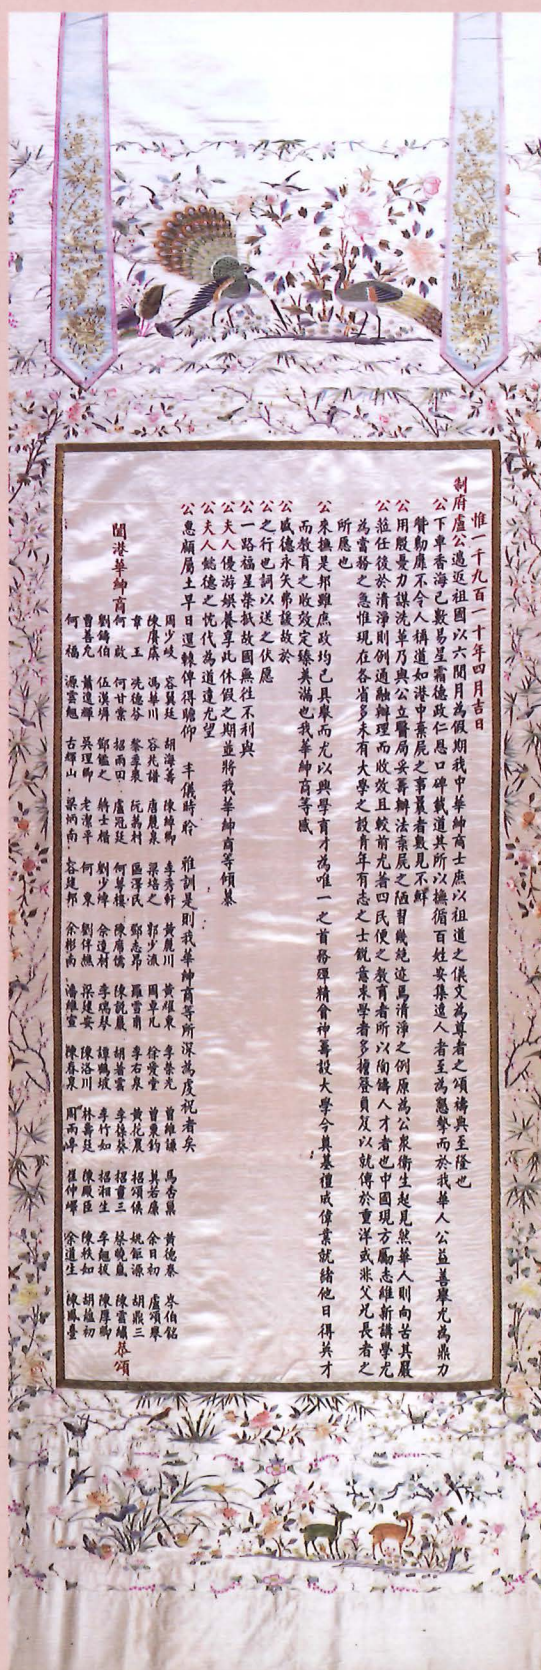 惟一千九百一十年四月吉日
制府盧公遄返祖國以六閱月為假期我中華紳商士庶以祖道之儀文為尊者之頌禱典至隆也
公下車香海已數易星霜德政仁恩口碑載道其所以撫循百姓安集遠人者至為懇摯而於我華人公益善舉尤為鼎力
贊勷靡不令人稱道如港中棄屍之事曩者數見不鮮
公用殷憂力謀洗革乃與公立醫局妥籌辦法棄屍之陋習幾絕迹焉清淨之例原為公衆衛生起見然華人則向苦其嚴
公蒞任後於清淨則例通融辦理而收效且較前尤著四民便之教育者所以陶鑄人才者也中國現方厲志維新講學尤
為當務之急惟現在各省多未有大學之設青年有志之士銳意求學者多擔簦負笈以就傅於重洋或非父兄長者之
所願也
公來撫是邦雖庶政均已具舉而尤以興學育才為唯一之首務殫精會神籌設大學今奠基禮成偉業就緒他日得英才
而教育之收效定臻美滿也我華紳商等感
公盛德永矢弗諼故於
公之行也詞以送之伏愿
公一路福星榮抵故國無往不利與
公夫人優游娛養享此休假之期並將我華紳商等傾慕
公夫人懿德之忱代為道達尤望
公惠顧屬土早日還轅俾得瞻仰 丰儀時聆 雅訓是則我華紳商等所深為虔祝者矣
闔港華紳商
周少岐 容翼廷 胡海籌 陳綽卿 李秀軒 黃麗川 黃耀東 李榮光 曾維謙 馬杏泉 黃德泰 岑伯銘
陳賡虞 馮華川 容兆譜 唐麗泉 梁培之 郭少流 周卓凡 徐愛堂 曾東鈞 莫若廉 余日初 盧頌舉
韋玉 冼德芬 黎季裴 阮荔村 區澤民 鄧志昂 羅雪甫 李右泉 黃花農 招頌侯 姚鉅源 胡鼎三
何啟 何甘棠 招雨田 盧冠廷 何萼樓 陳席儒 陳說巖 胡普雲 李葆葵 招畫三 蔡曉嵐 陳雲繡 恭頌
劉鑄伯 伍漢墀 鄭鑑之 蔣士楷 劉少焯 余道材 李瑞琴 譚鶴坡 李竹如 招湘生 李翹狨 陳厚卿
曹善允 蕭遠輝 吳理卿 老潔平 何東 劉伴樵 梁建安 陳洛川 林壽廷 陳殿臣 陳秩如 胡蘊初
何福 源雲翹 古輝山 梁炳南 容建邦 余彬南 潘維宣 陳春泉 周雨亭 崔仲嶧 余道生 陳鳳臺